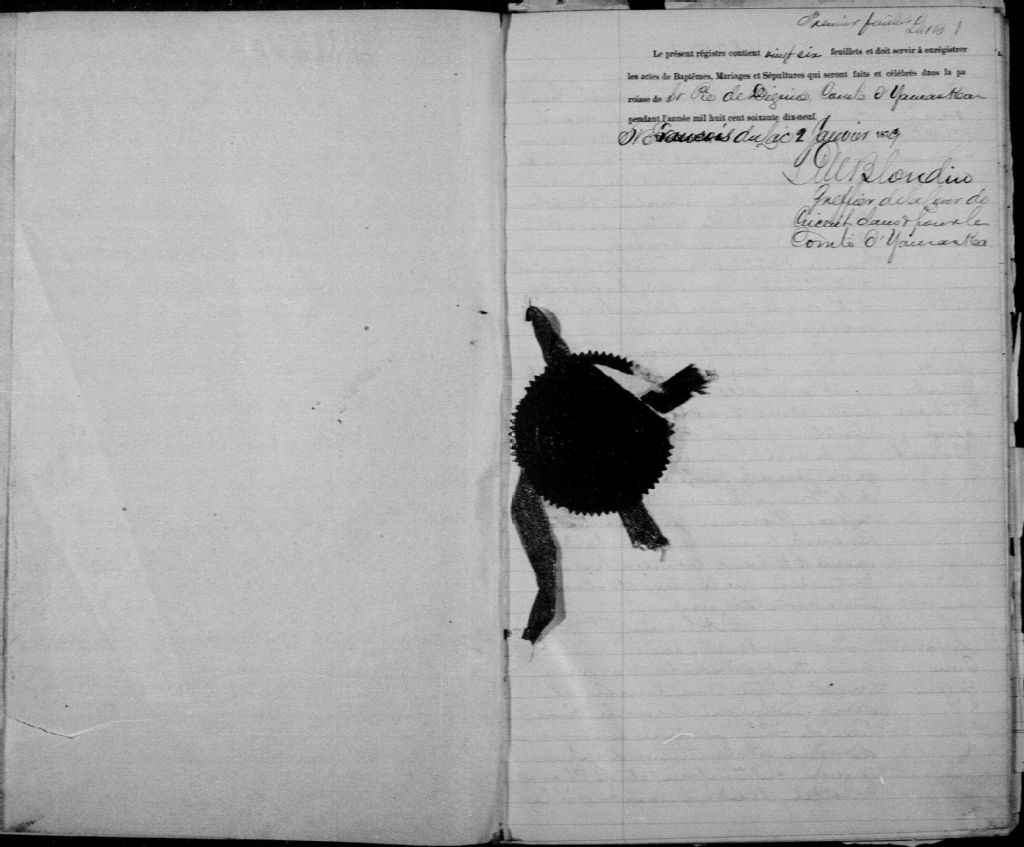 Premier feuillet
Le présent régistre contient vingt six feuillets et doit servir à enrégistrer
les actes de Baptêmes, Mariages et Sépultures qui seront faits et célébrés dans la pa
roisse de St Pie de Deguire, Comté d'Yamaska
pendant l'année mil huit cent soixante dix-neuf.
St François du Lac 2 Janvier 1879
Blondin
Greffier de la Cour de
Circuit dans & pour le
Comté d'Yamaska.